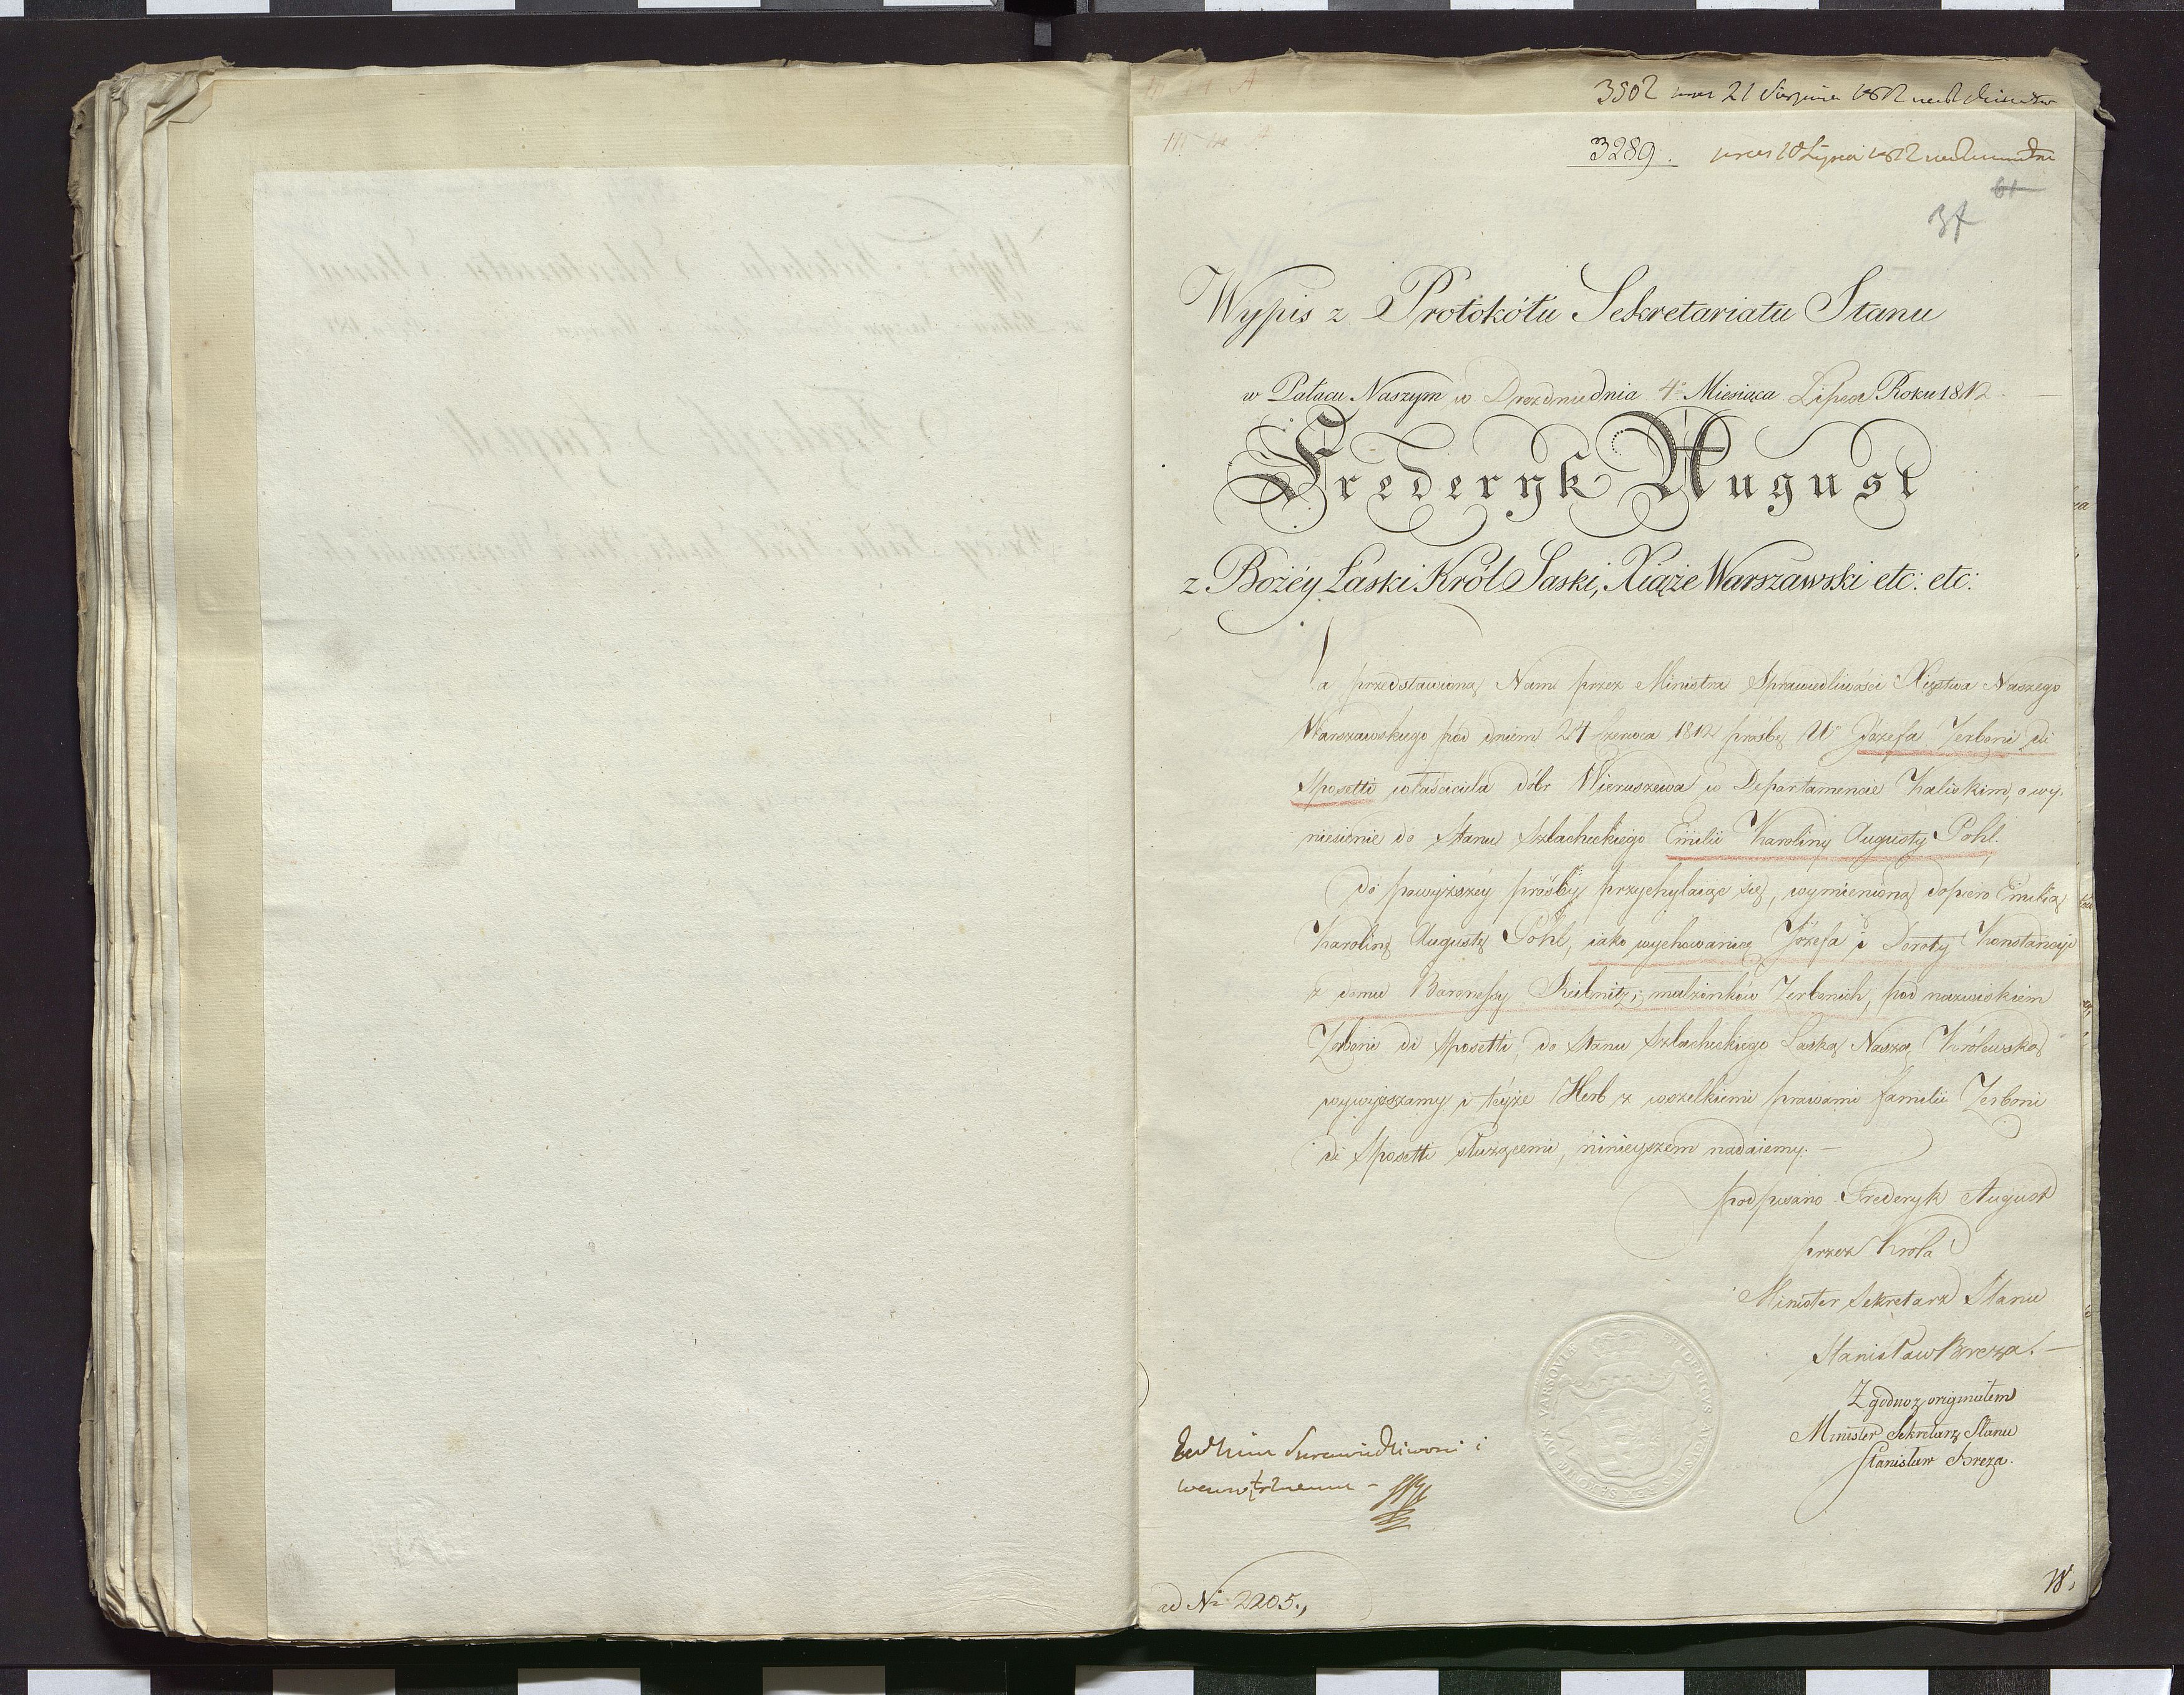 3502 21 Sierpnia 1812
3289.
61
37
Wypis z Protokółu Sekretariatu Stanu
w Pałacu Naszym w Dreznie dnia 4° Miesiąca Lipca Roku 1812
Frederyk August
z Bożéy Łaski Król Saski, Xiąże Warszawski etc: etc:
Na przedstawioną Nam przez Ministra Sprawiedliwości Xięstwa Naszego
Warszawskiego pod dniem 24 Czerwca 1812 prośbę Ur Józefa Zerboni di
Sposetti właściciela dóbr Wieruszewa w Departamencie Kaliskim, o wy-
niesienie do Stanu Szlacheckiego Emilii Karoliny Augusty Pohl.
Do powyższéy prośby przychylaiąc się, wymienioną dopiero Emilią
Karolinę Augustę Pohl, iako wychowanicę Józefa i Doroty Konstancyi
z domu Baronessy Reibnitz, małżonków Zerbonich, pod nazwiskiem
Zerboni di Sposetti, do Stanu Szlacheckiego Łaską Naszą Królewską
wywyższamy i téyże Herb z wszelkiemi prawami familii Zerboni
di Sposetti służącemi, ninieyszem nadaiemy.
podpisano Frederyk August
przez Króla
Minister Sekretarz Stanu
Stanisław Breza.
Zgodno z originałem
Minister Sekretarz Stanu
Stanisław Breza.
FRIDERICVS AVGVSTVS REX SAXONIÆ DVX VARSOVIÆ
Sprawiedliwości i
wewnętrznemu
ad No 2205.,
W.